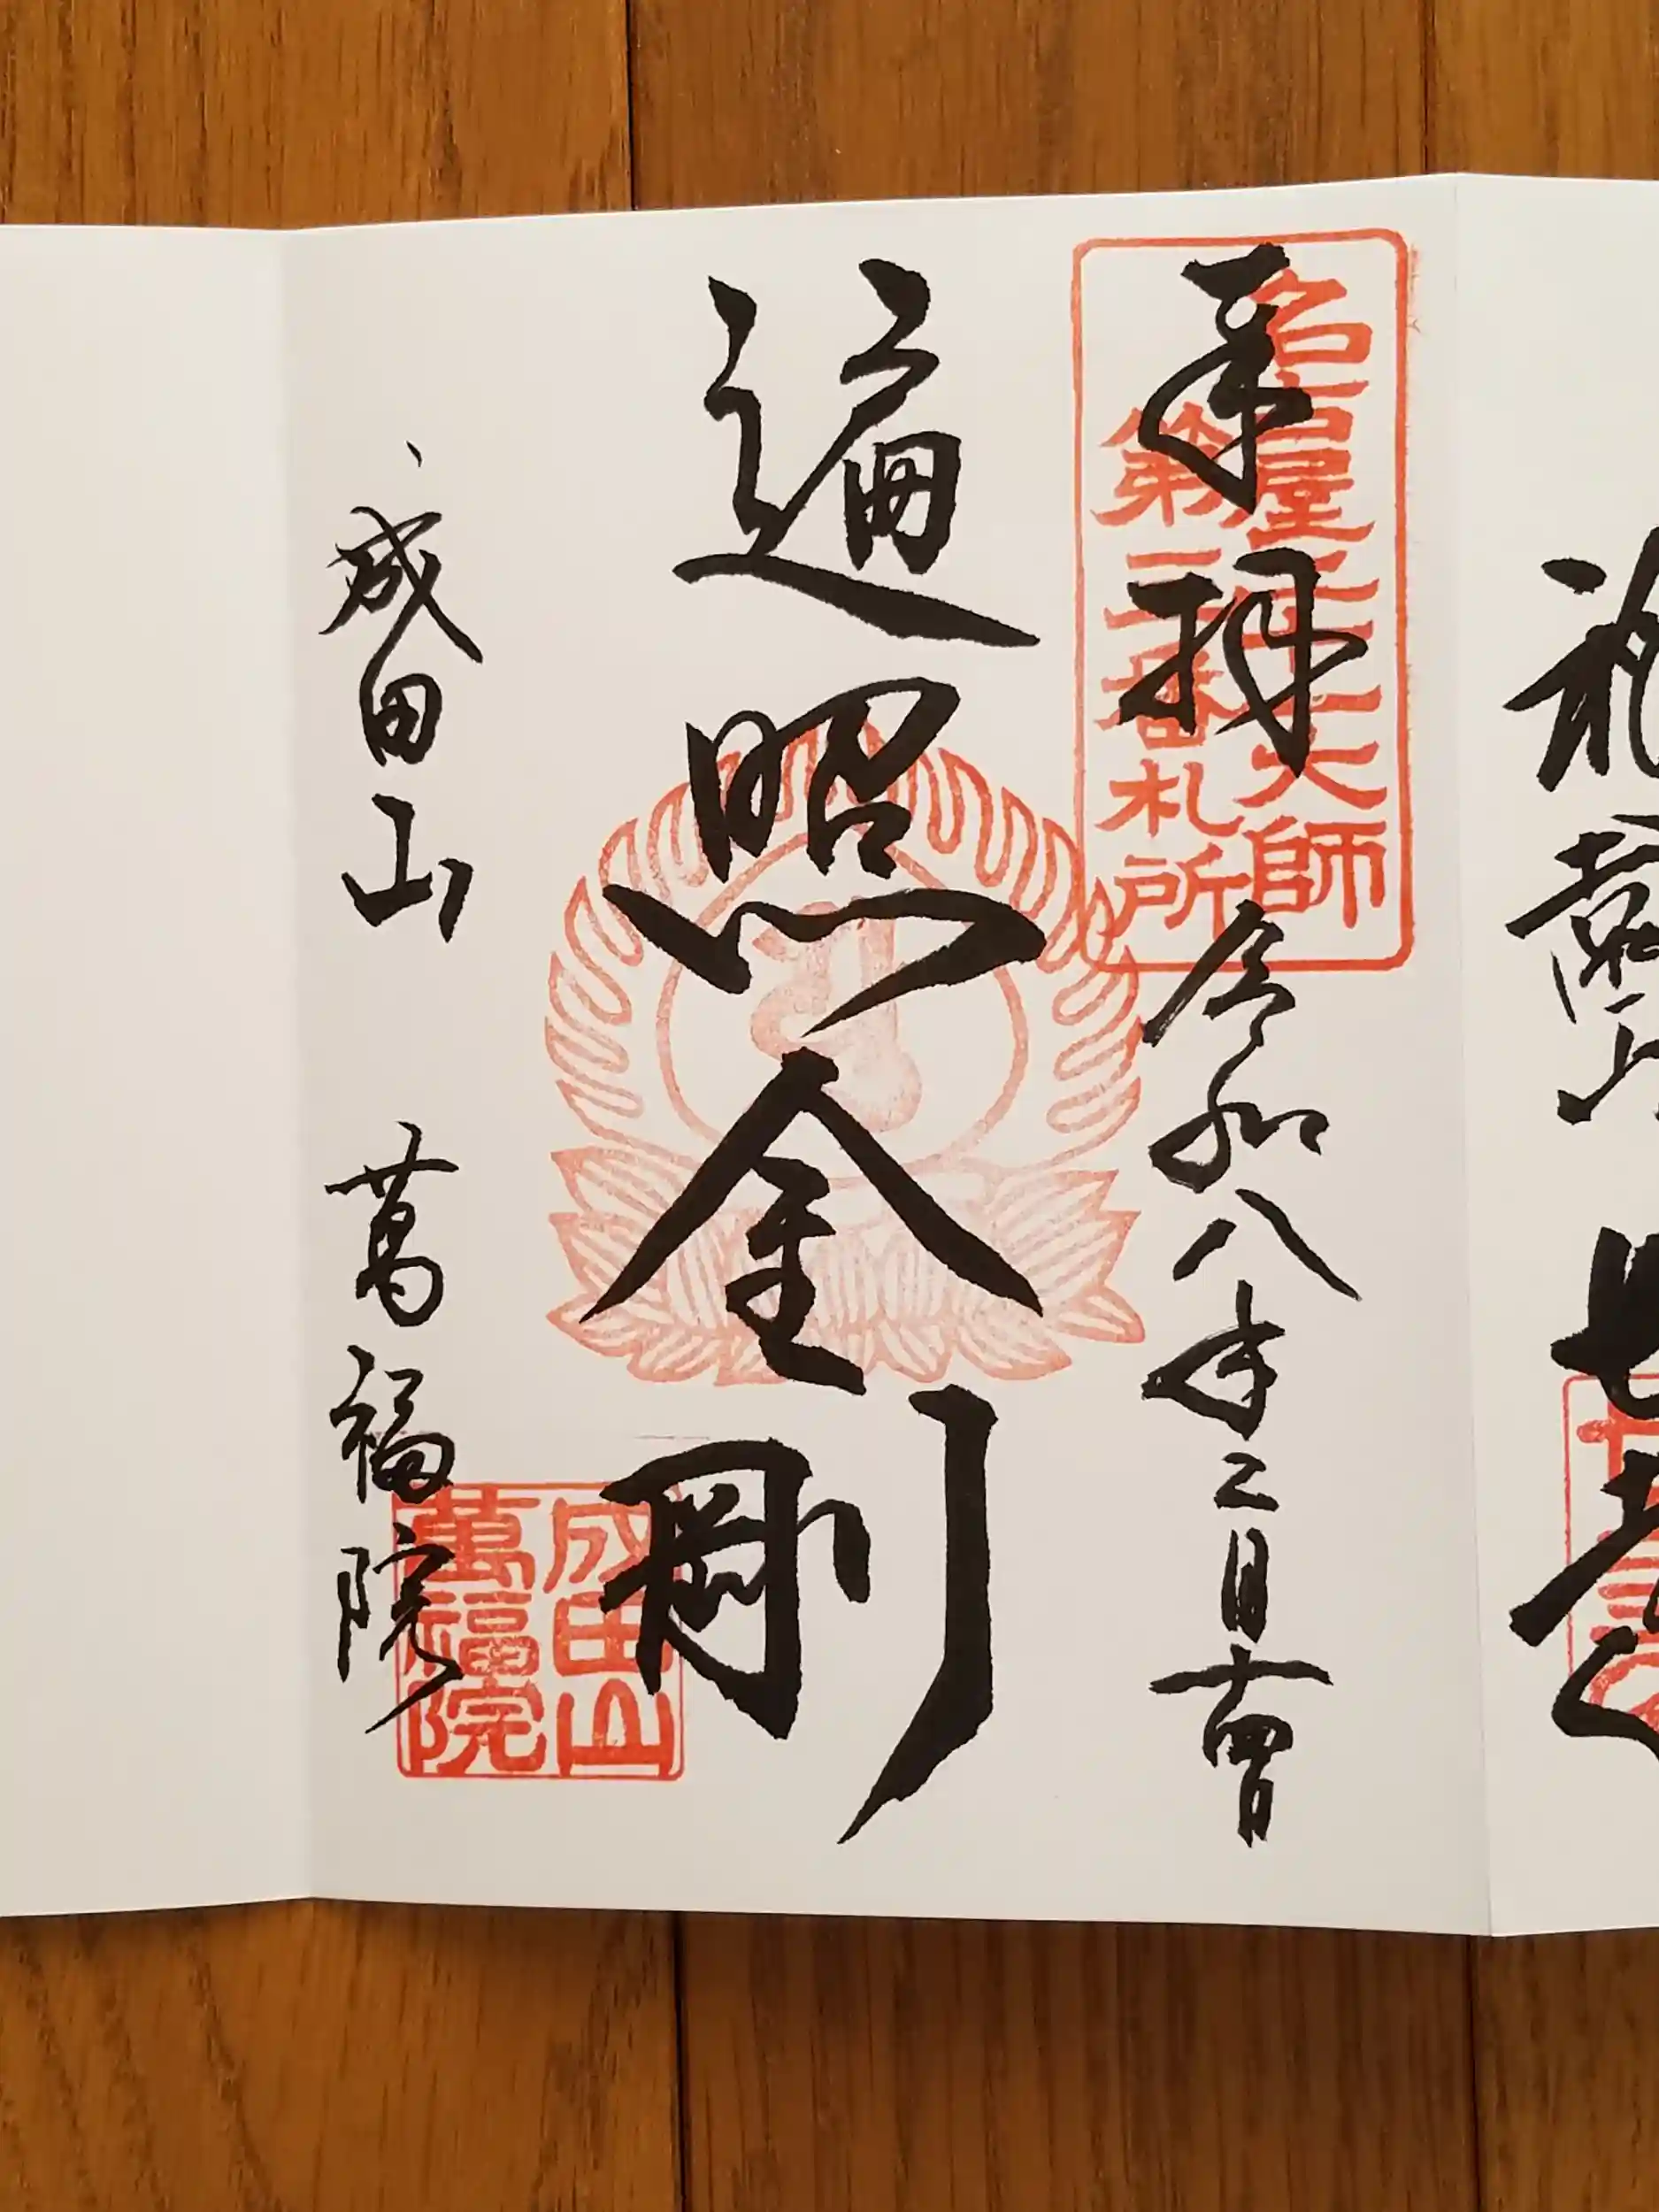 奉拝 令和八年二月十四日
名古屋二十一大師
第二番札所
遍照金剛
成田山 萬福院
成田山
萬福院